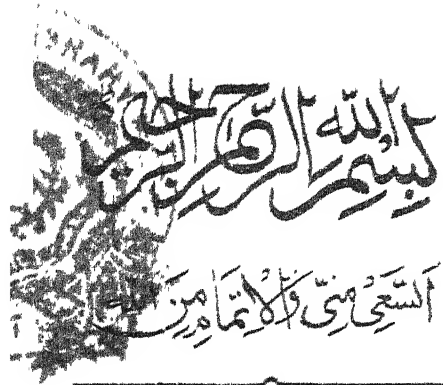 SHAH
بِسْمِ اللهِ الرَّحْمٰنِ الرَّحِيْمِ
اَلسَّعْیُ مِنِّیْ وَالْاِتْمَامُ مِنَ اللهِ